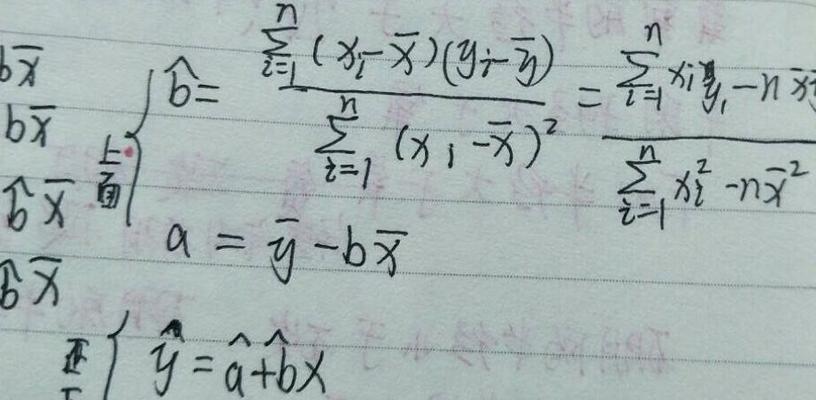 bx̄
bx̄
b̂x̄
b̂x̄
b̂ = \frac{\sum_{i=1}^{n} (x_i - \bar{x})(y_i - \bar{y})}{\sum_{i=1}^{n} (x_i - \bar{x})^2} = \frac{\sum_{i=1}^{n} x_i y_i - n\bar{x}}{\sum_{i=1}^{n} x_i^2 - n\bar{x}^2}
a = ȳ - bx̄
ŷ = â + b̂x